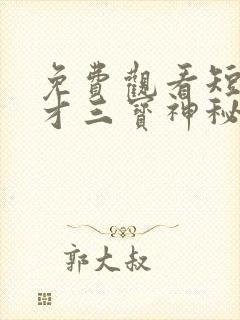 免費觀看短
才三寶神秘
郭大叔